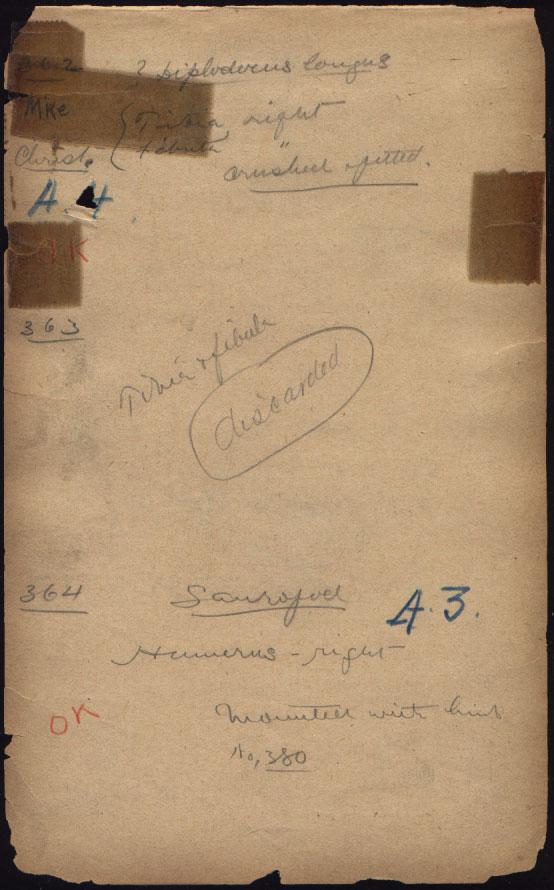 362 ? Diplodocus longus
Mke
Tibia right
Christ. Fibula "
crushed & pitted.
A.4.
OK
363
Tibia & fibula
discarded
364 Sauropod A.3.
Humerus - right
OK
Mounted with limb
No, 380